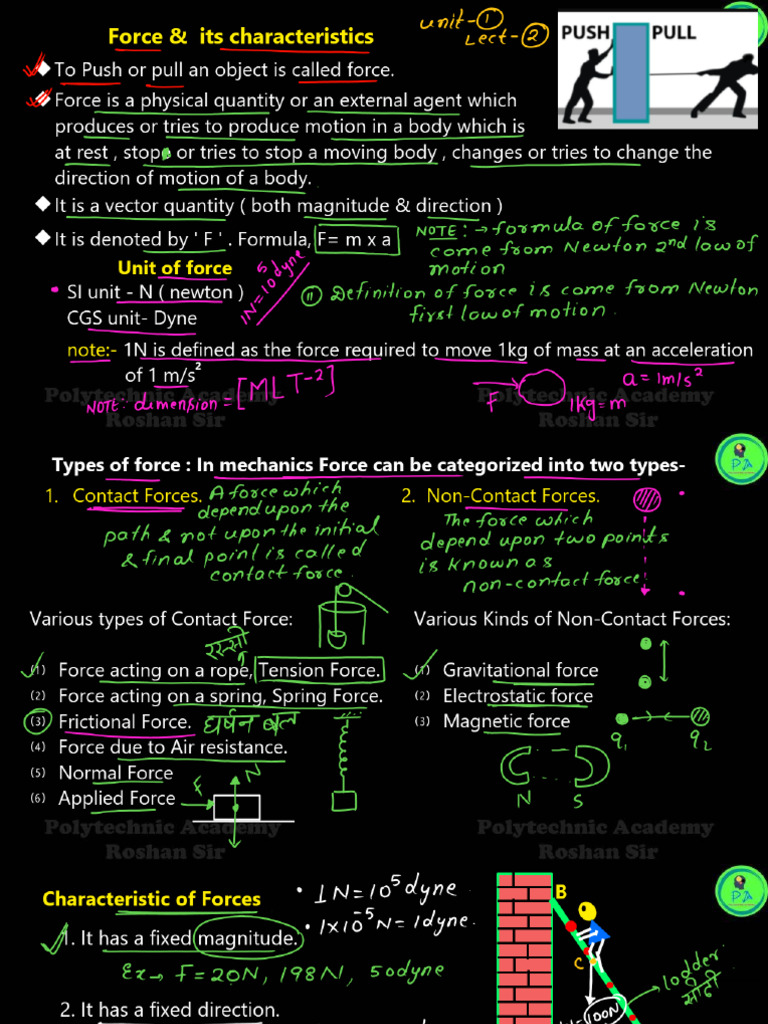 Force & its characteristics
unit-①
Lect-②
PUSH PULL
To Push or pull an object is called force.
Force is a physical quantity or an external agent which
produces or tries to produce motion in a body which is
at rest , stops or tries to stop a moving body , changes or tries to change the
direction of motion of a body.
It is a vector quantity ( both magnitude & direction )
It is denoted by ' F ' . Formula, F= m x a
NOTE: → formula of force is
come from Newton 2nd law of
motion
Unit of force
SI unit - N ( newton )
CGS unit- Dyne
1N=10⁵dyne
(ii) Definition of force is come from Newton
first law of motion.
note:- 1N is defined as the force required to move 1kg of mass at an acceleration
of 1 m/s²
NOTE: dimension = [MLT-2]
F
1kg=m
a=1m/s²
Polytechnic Academy
Roshan Sir
Polytechnic Academy
Roshan Sir
Types of force : In mechanics Force can be categorized into two types-
PA
1. Contact Forces. A force which
depend upon the
path & not upon the initial
& final point is called
contact force.
2. Non-Contact Forces.
The force which
depend upon two points
is known as
non-contact force.
Various types of Contact Force:
रस्सी
(1) Force acting on a rope, Tension Force.
(2) Force acting on a spring, Spring Force.
(3) Frictional Force. घर्षन बल
(4) Force due to Air resistance.
(5) Normal Force
(6) Applied Force
F
N
Various Kinds of Non-Contact Forces:
(1) Gravitational force
(2) Electrostatic force
(3) Magnetic force
q1 q2
N S
Polytechnic Academy
Roshan Sir
Polytechnic Academy
Roshan Sir
PA
Characteristic of Forces
1N=10⁵dyne
1×10⁻⁵N=1dyne.
1. It has a fixed magnitude.
Ex→ F=20N, 198N, 50dyne
2. It has a fixed direction.
B
C
100N
lodder
सीढी